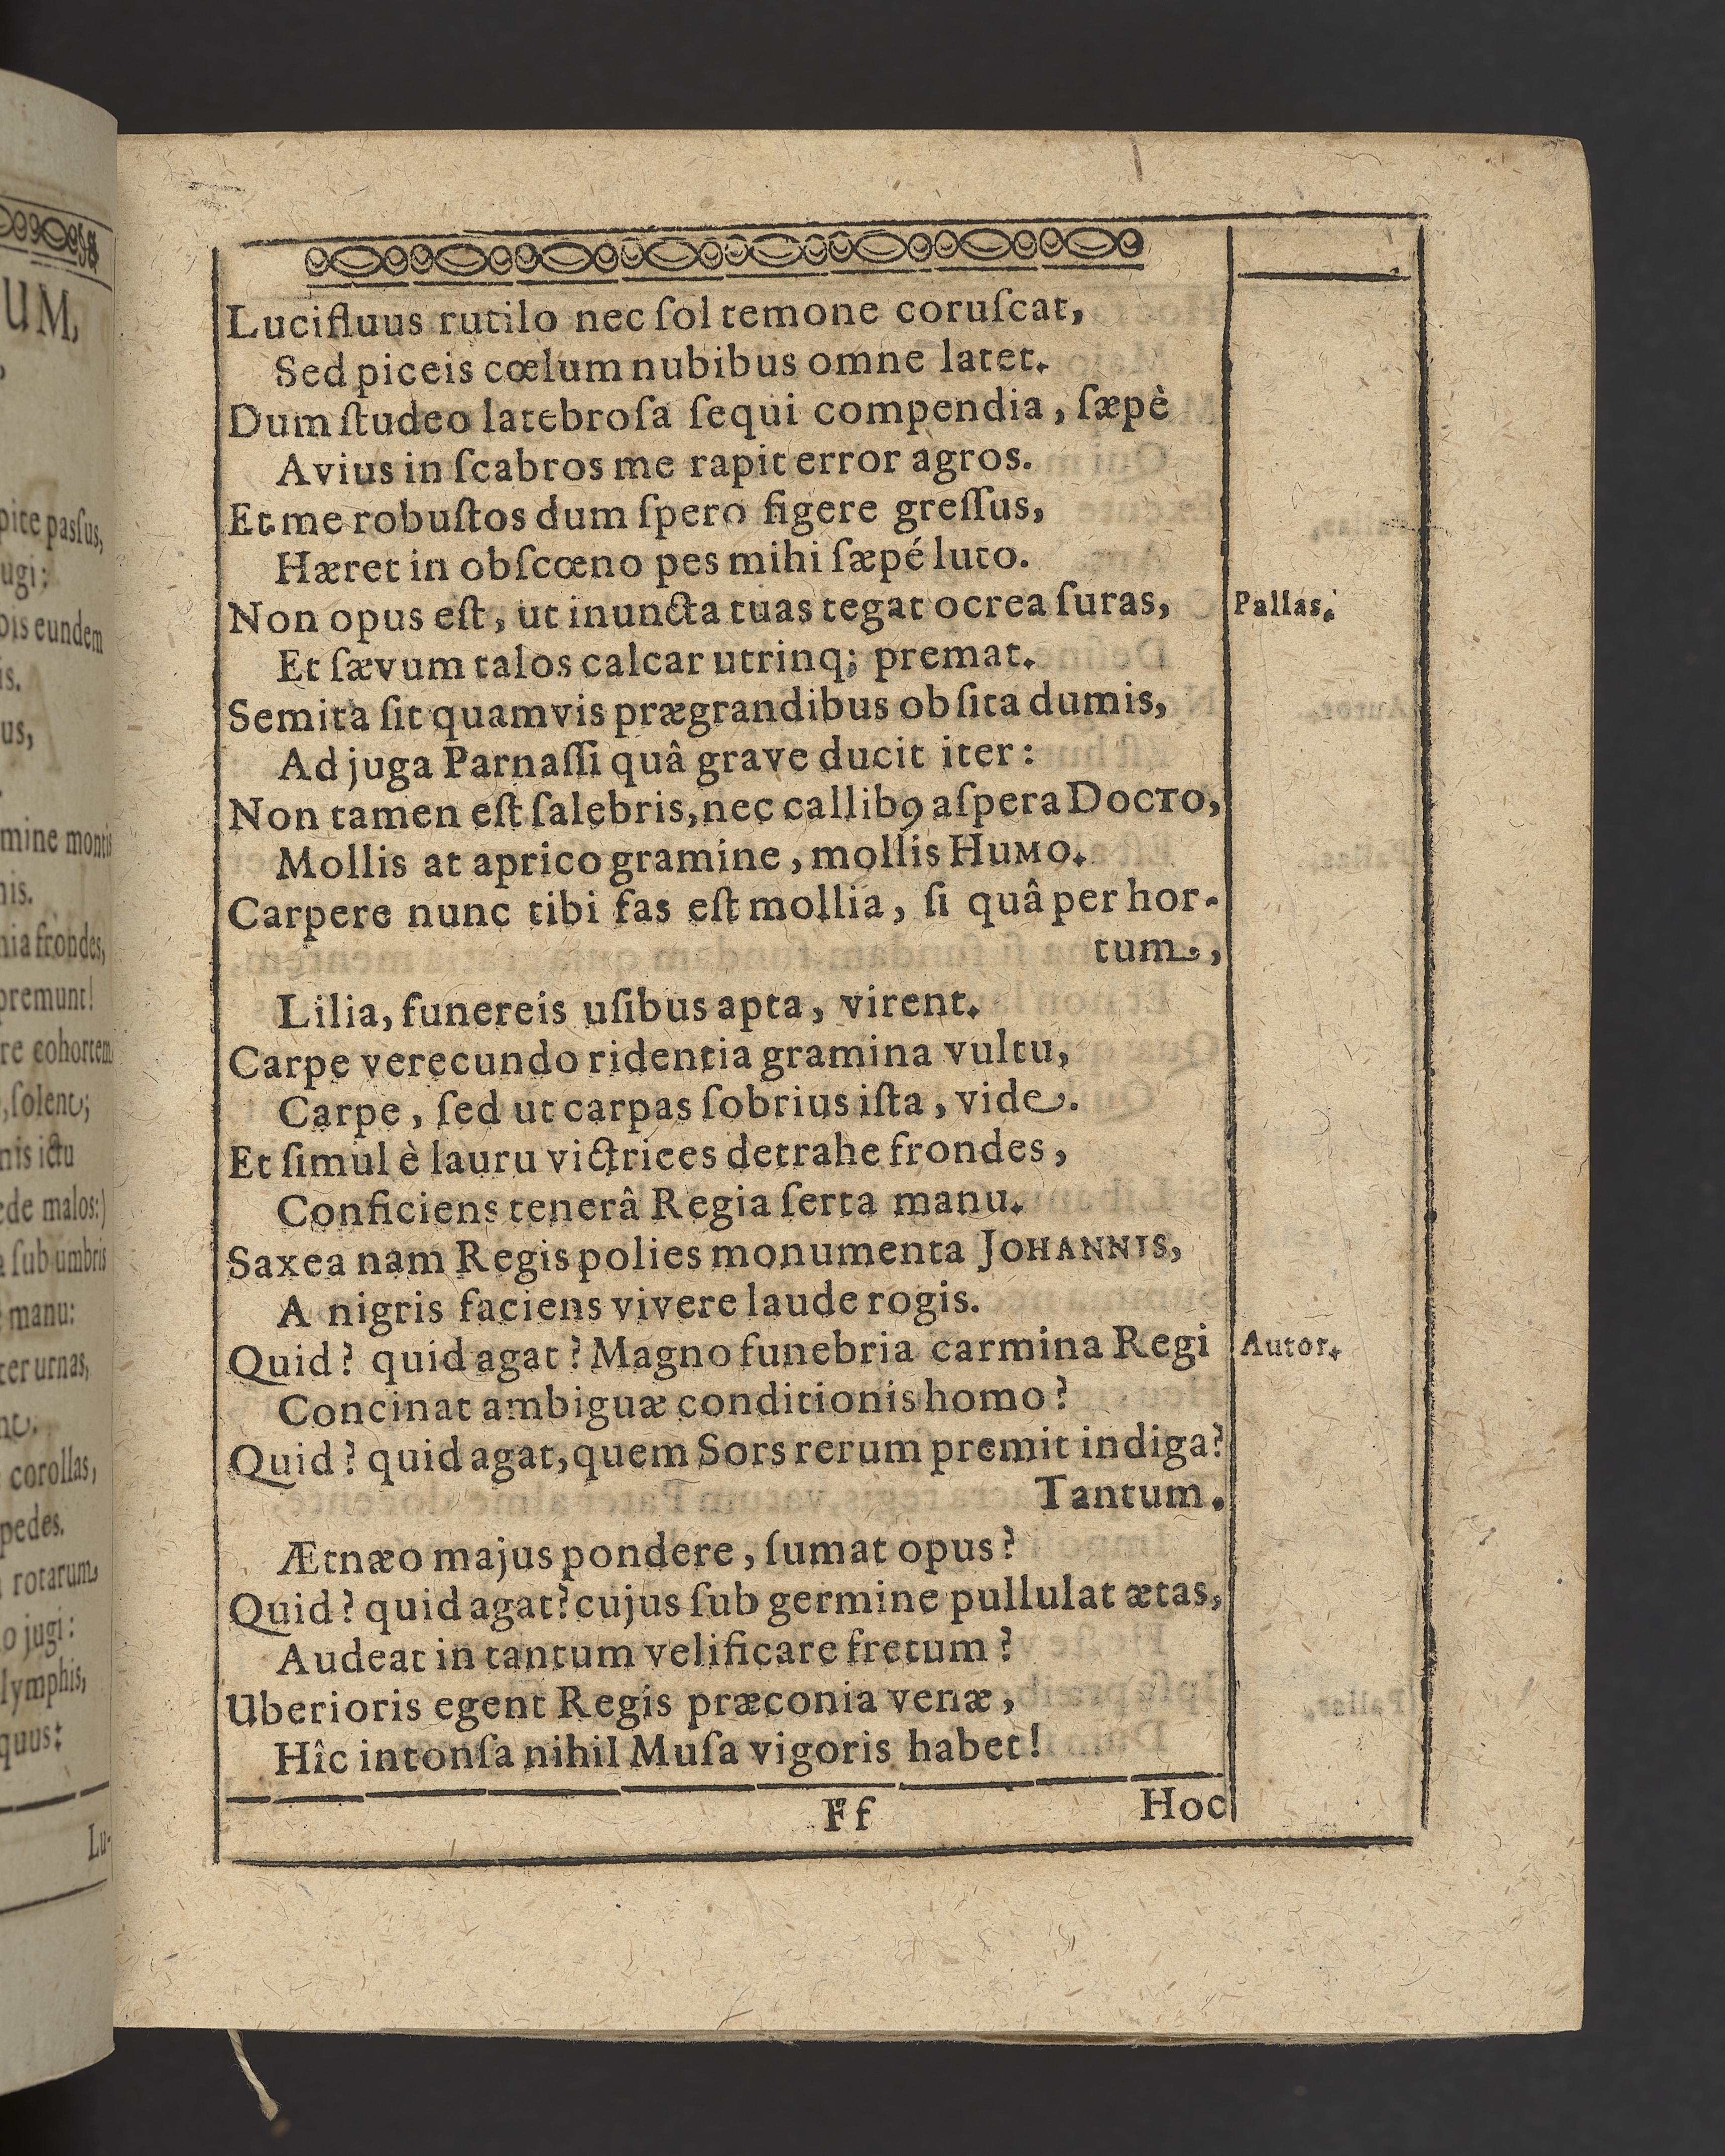 Lucifluus rutilo nec ſol temone coruſcat,
Sed piceis cœlum nubibus omne latet.
Dum ſtudeo latebroſa ſequi compendia, ſæpè
Avius in ſcabros me rapit error agros.
Et me robuſtos dum ſpero figere greſſus,
Hæret in obſcœno pes mihi ſæpé luto.
Non opus eſt, ut inuncta tuas tegat ocrea ſuras,
Pallas.
Et ſævum talos calcar utrinq; premat.
Semita ſit quamvis prægrandibus obſita dumis,
Ad juga Parnaſſi quâ grave ducit iter:
Non tamen eſt ſalebris, nec callibꝰ aſpera DOCTO,
Mollis at aprico gramine, mollis HUMO.
Carpere nunc tibi fas eſt mollia, ſi quâ per hor-
tum,
Lilia, funereis uſibus apta, virent.
Carpe verecundo ridentia gramina vultu,
Carpe, ſed ut carpas ſobrius iſta, vide.
Et ſimul è lauru victrices detrahe frondes,
Conficiens tenerâ Regia ſerta manu.
Saxea nam Regis polies monumenta JOHANNIS,
A nigris faciens vivere laude rogis.
Quid? quid agat? Magno funebria carmina Regi
Autor.
Concinat ambiguæ conditionis homo?
Quid? quid agat, quem Sors rerum premit indiga?
Tantum.
Ætnæo majus pondere, ſumat opus?
Quid? quid agat? cujus ſub germine pullulat ætas,
Audeat in tantum velificare fretum?
Uberioris egent Regis præconia venæ,
Hîc intonſa nihil Muſa vigoris habet!
Ff
Hoc
UM,
pite paſsus,
ugi;
bis eundem
is.
us,
mine montis
nis.
nia frondes,
premunt!
re cohortem
, ſolent;
nis ictu
ede malos:)
ſub umbris
manu:
ter urnas,
corollas,
pedes.
rotarum
o jugi:
lymphis,
quus:
Lu-